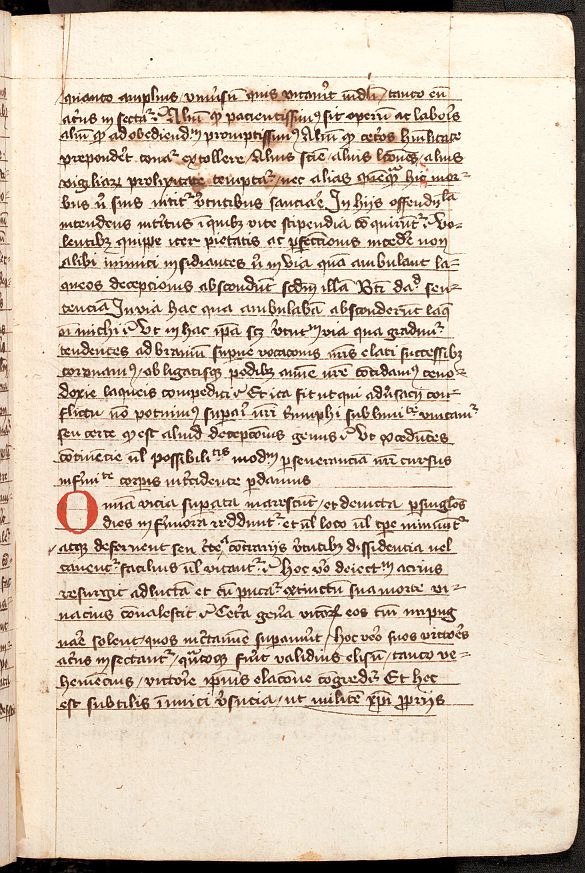 quanto amplius uniusum quis uitauerit mundi / tanto eum
acrius insectatur Alium quod pacientissimus sit operum ac laboris
alium quod ad obediendum promptissimus Alium quod ceteros humilitate
preponderet conatur extollere / Alius scientie / alius lectionis / alius
vigiliarum prolixitate temptatur / nec alias quemquam hic mor-
bus nisi suis nititur virtutibus sauciare In hijs offendicula
intendens interitus in quibus vite stipendia conquiruntur Vo-
lentibus quippe iter pietatis ac perfectionis incedere non
alibi inimici insidiantes nisi in via qua ambulant la-
queos deceptionis abscondunt secundum illam Beati dauid sen-
tenciam In via hac qua ambulabam absconderunt laque
os michi Vt in hac ipsa scilicet virtutum via qua gradimur
tendentes ad brauium superne vocacionis nostris elati successibus
corruamus / obligatisque pedibus anime nostre cotidianis ceno-
doxie laqueis compediti Et ita fit ut qui aduersarij con-
flictu non potuimus superari nostri triumphi sublimitate vincamur
seu certe quod est aliud deceptionis genus Vt excedentes
continencie uel possibilitatis modum perseuerancia nostri cursus
infirmitate corporis incidente perdamus
Omnia vicia superata marcescunt / et deuicta per singulos
dies infirmiora redduntur et uel loco uel tempore minuuntur
atque deferuent seu certe a contrarijs virtutibus dissidencia uel
cauentur facilius uel vitantur Hoc vero deiectum acrius
resurgit ad luctam et cum putatur extinctum sua morte vi-
uacius conualescit Cetera genera vitiorum eos tantum inpug
nare solent / quos in certamine superauerint / hoc vero suos victores
acrius insectatur / quantoque fuerit validius elisum / tanto ve-
hemencius / victorie ipsius elacione congreditur Et hec
est subtilis inimici versucia / ut militem xpi proprijs